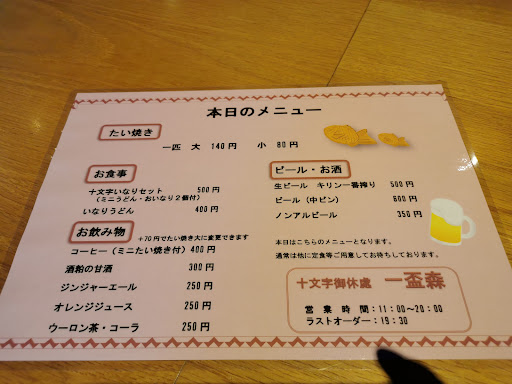 本日のメニュー
たい焼き
一匹 大 140円 小 80円
お食事
十文字いなりセット 500円
(ミニうどん・おいなり2個付)
いなりうどん 400円
お飲み物 +70円でたい焼き大に変更できます
コーヒー(ミニたい焼き付) 400円
酒粕の甘酒 300円
ジンジャーエール 250円
オレンジジュース 250円
ウーロン茶・コーラ 250円
ビール・お酒
生ビール キリン一番搾り 500円
ビール(中ビン) 600円
ノンアルビール 350円
本日はこちらのメニューとなります。
通常は他に定食等ご用意してお待ちしております。
十文字御休處 一盃森
営業時間:11:00~20:00
ラストオーダー:19:30